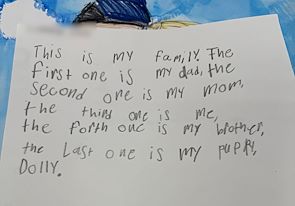 This is my family. The
first one is my dad, the
second one is my mom,
the third one is me,
the forth one is my brother,
the Last one is my puppy,
Dolly.